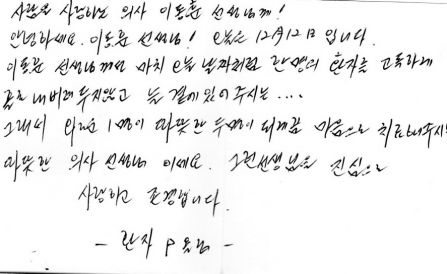 사람을 사랑하는 의사 이동훈 선생님께!
안녕하세요. 이동훈 선생님! 오늘은 12月12日 입니다.
이동훈 선생님께선 마치 오늘 날짜처럼 한명의 환자를 고독하게
홀로 내버려 두지않고 늘 곁에 있어 주시는 ....
그래서 외로운 1명이 따뜻한 두명이 되게끔 마음으로 치료해주시는
따뜻한 의사 선생님 이세요. 그런선생님을 진심으로
사랑하고 존경합니다.
- 환자 P 드림 -